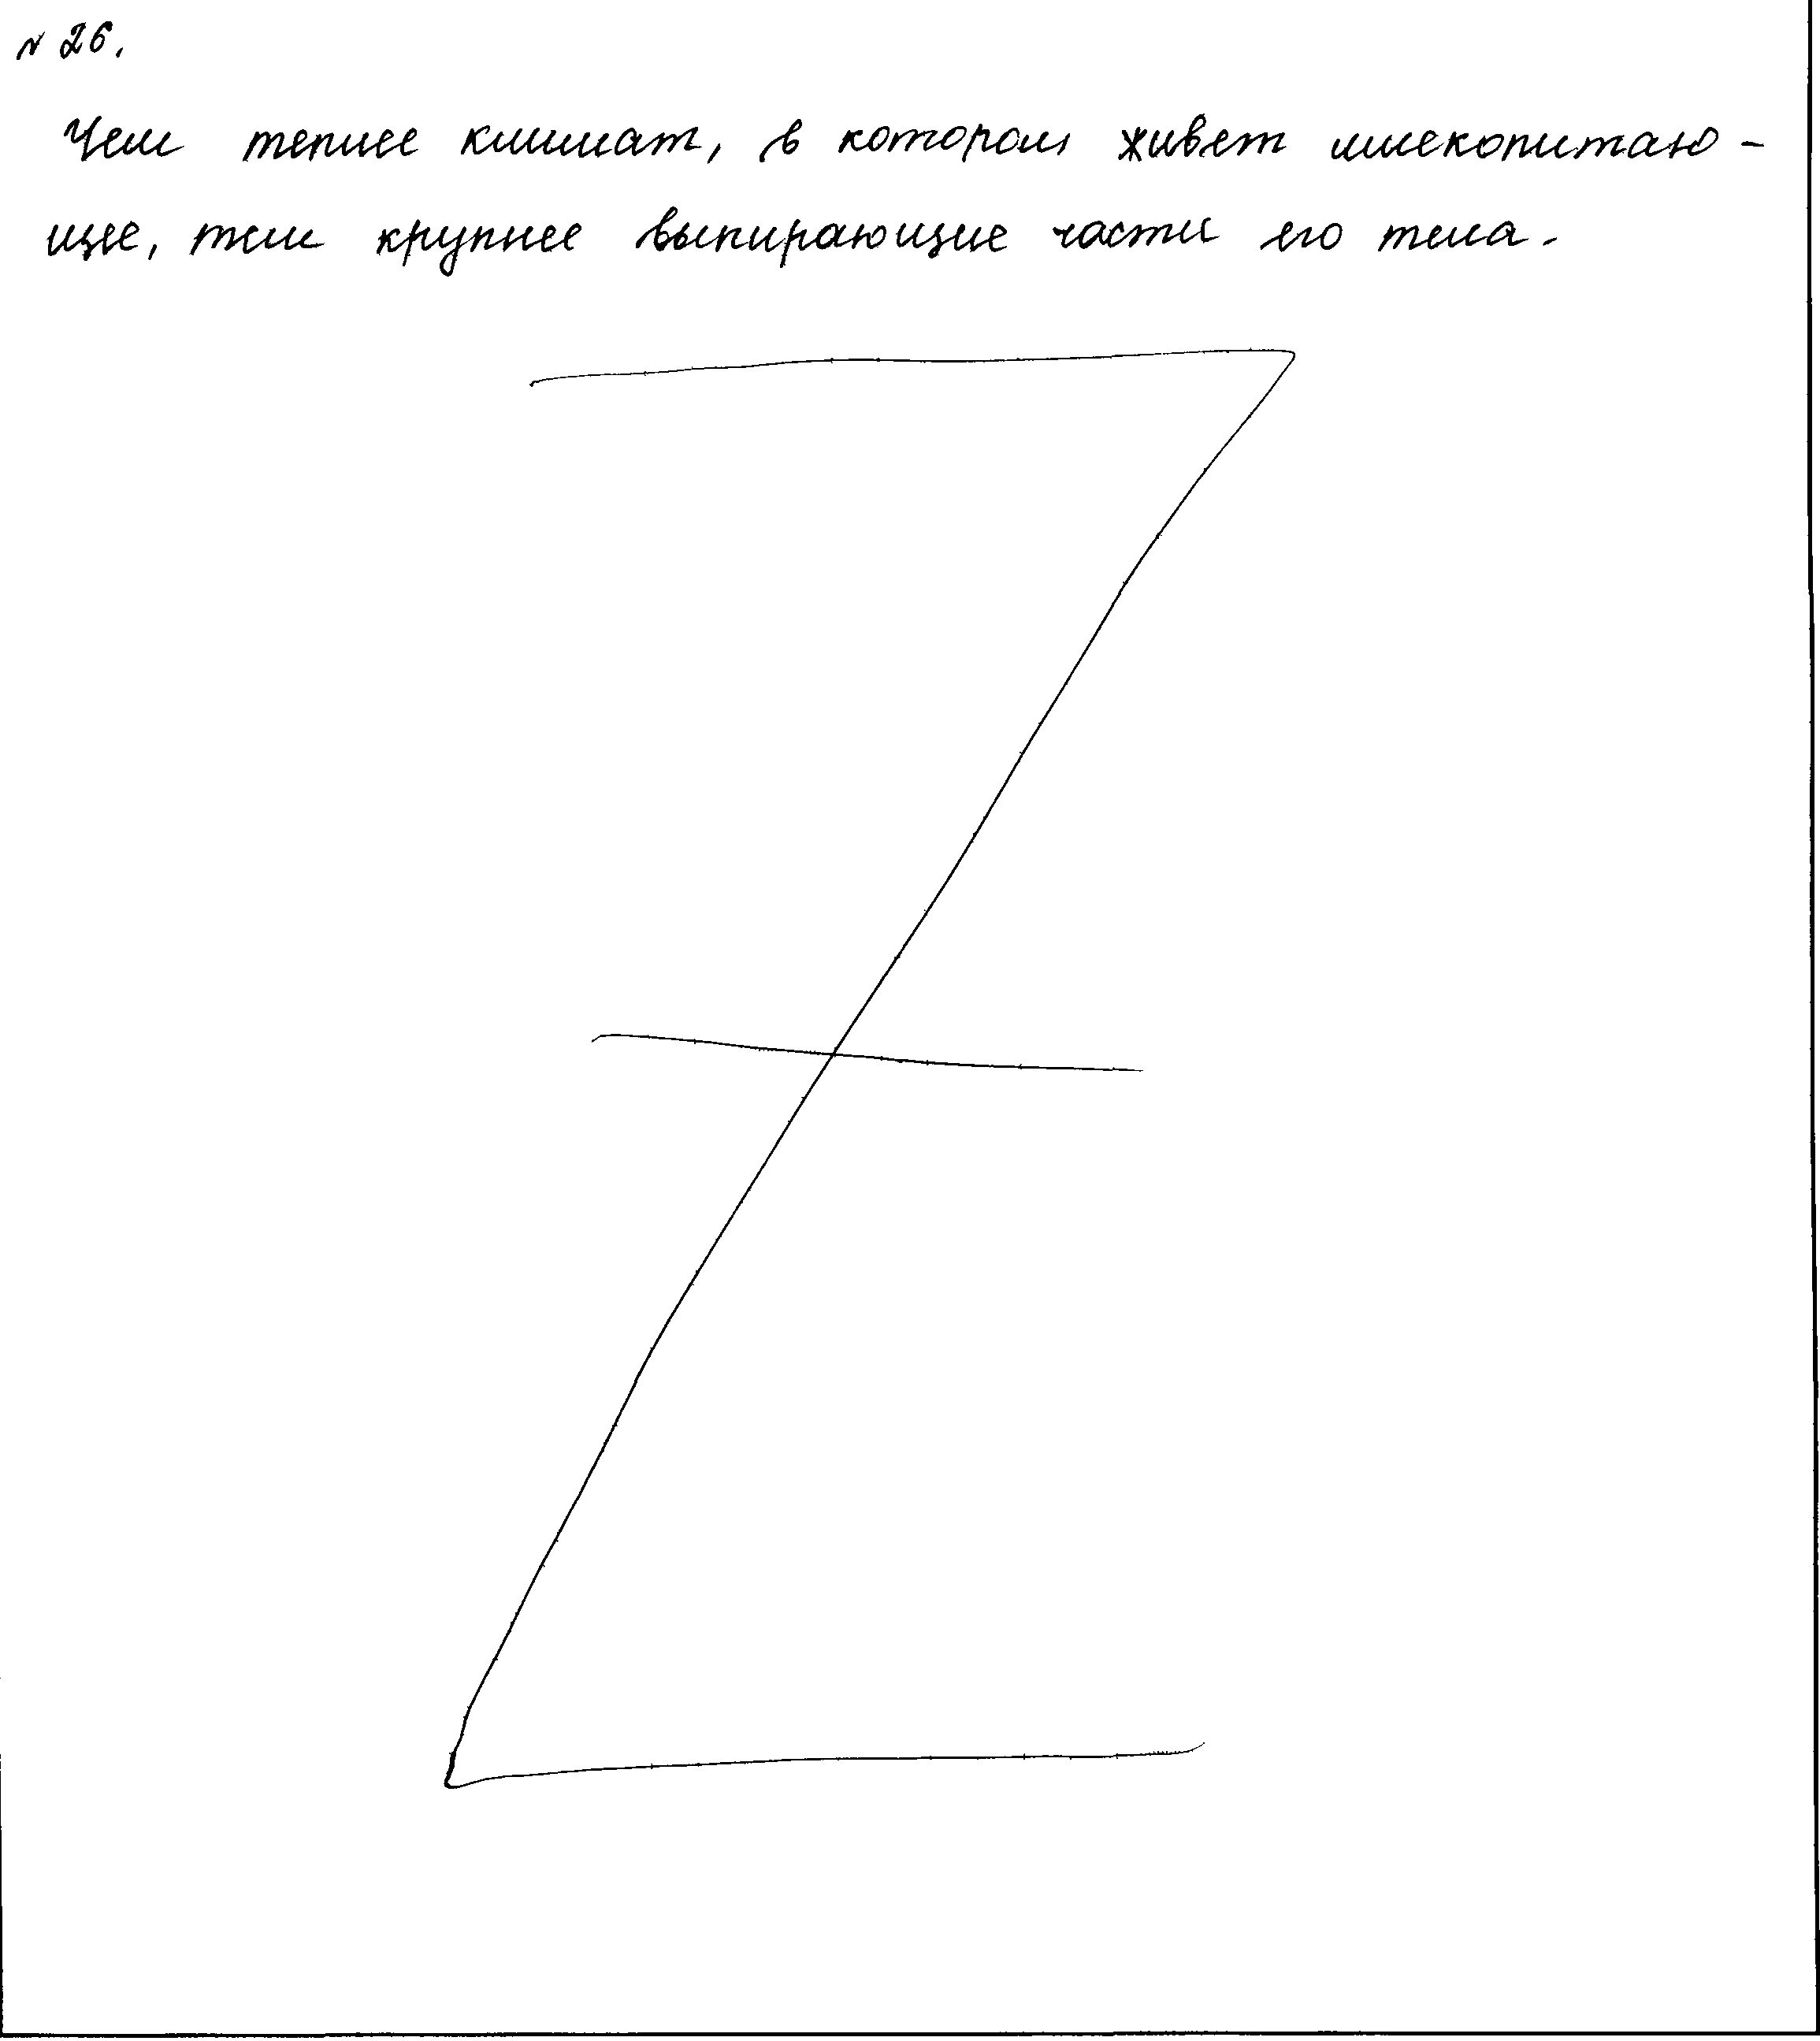 № 26.
Чем теплее климат, в котором живет млекопитаю-
щее, тем крупнее выпирающие части его тела.